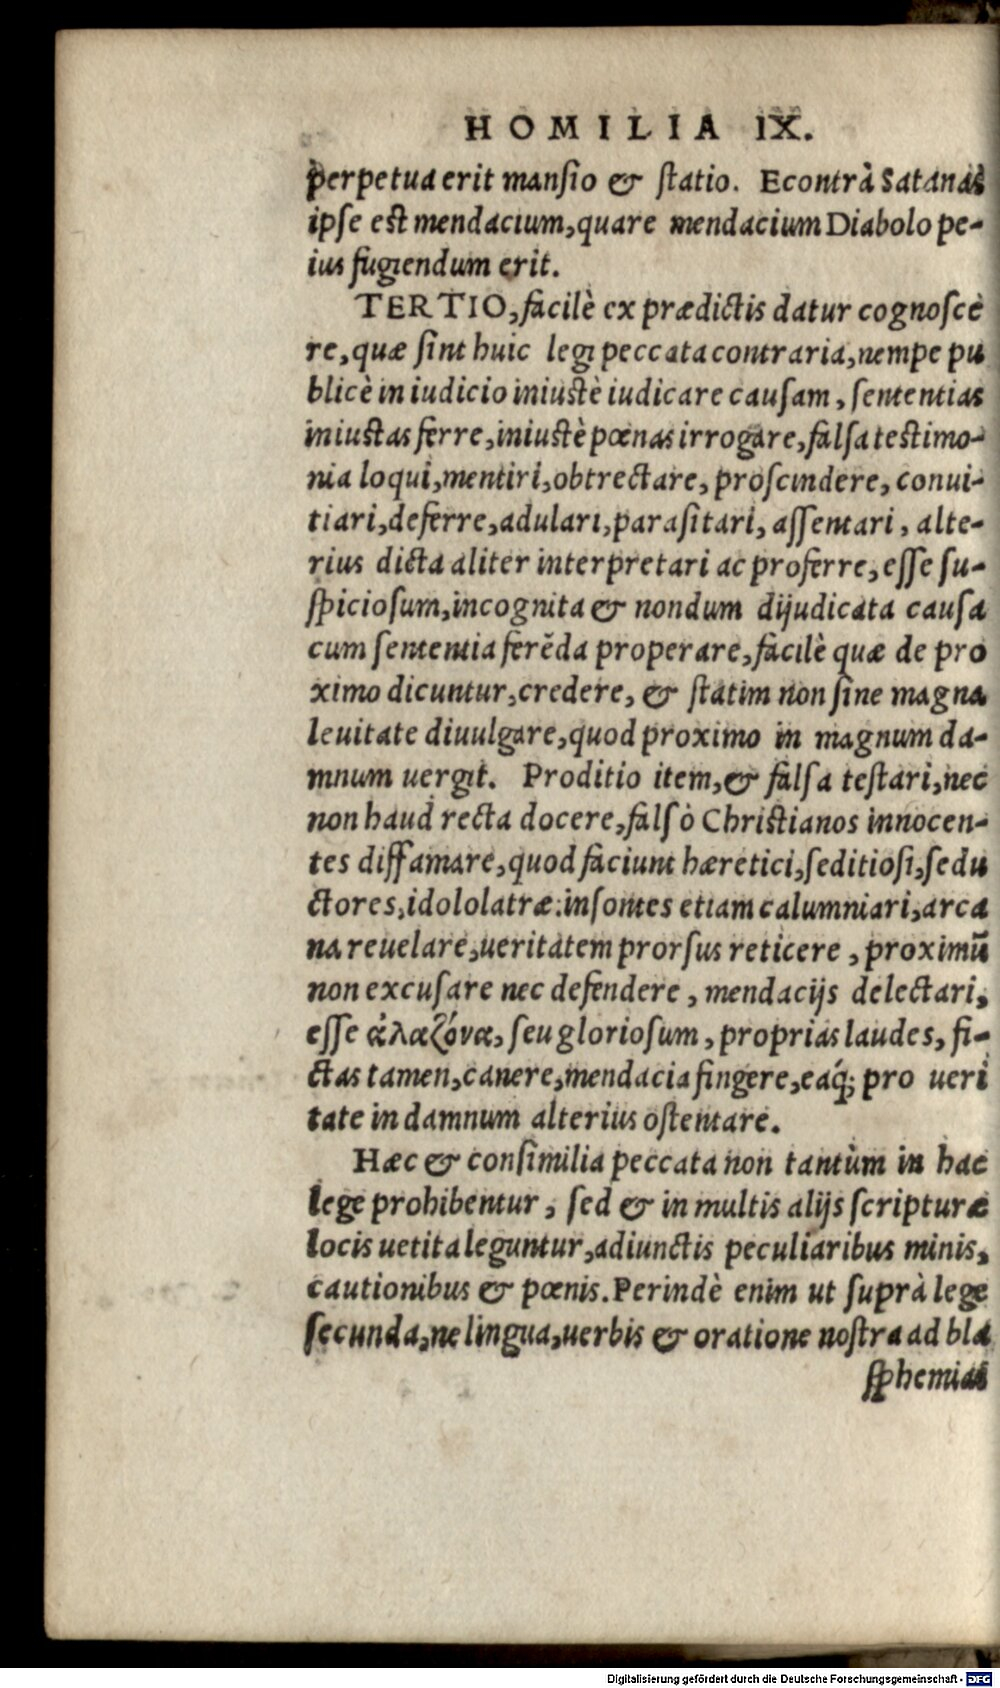 HOMILIA IX.
perpetua erit mansio & statio. Econtrà Satanas
ipse est mendacium, quare mendacium Diabolo pe-
ius fugiendum erit.
TERTIO, facilè ex prædictis datur cognosce
re, quæ sint huic legi peccata contraria, nempe pu
blicè in iudicio iniustè iudicare causam, sententias
iniustas ferre, iniustè pœnas irrogare, falsa testimo-
nia loqui, mentiri, obtrectare, proscindere, conui-
tiari, deferre, adulari, parasitari, assentari, alte-
rius dicta aliter interpretari ac proferre, esse su-
spiciosum, incognita & nondum dijudicata causa
cum sententia ferẽda properare, facilè quæ de pro
ximo dicuntur, credere, & statim non sine magna
leuitate diuulgare, quod proximo in magnum da-
mnum uergit. Proditio item, & falsa testari, nec
non haud recta docere, falsò Christianos innocen-
tes diffamare, quod faciunt hæretici, seditiosi, sedu
ctores, idololatræ: insontes etiam calumniari, arca
na reuelare, ueritatem prorsus reticere, proximũ
non excusare nec defendere, mendacijs delectari,
esse ἀλαζόνα, seu gloriosum, proprias laudes, fi-
ctas tamen, canere, mendacia fingere, eaq́; pro ueri
tate in damnum alterius ostentare.
Hæc & consimilia peccata non tantùm in hac
lege prohibentur, sed & in multis alijs scripturæ
locis uetita leguntur, adiunctis peculiaribus minis,
cautionibus & pœnis. Perindè enim ut suprà lege
secunda, ne lingua, uerbis & oratione nostra ad bla
sphemias
Digitalisierung gefördert durch die Deutsche Forschungsgemeinschaft - DFG